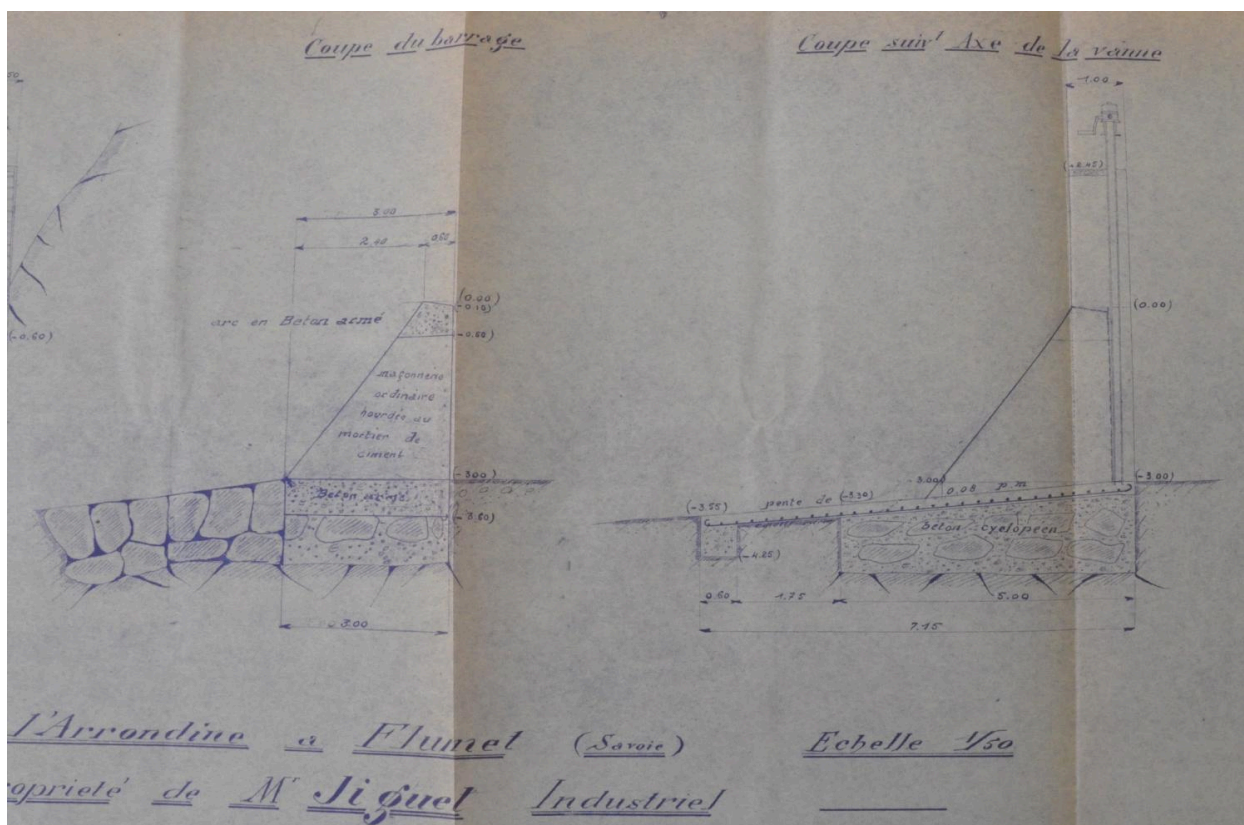 Coupe du barrage
Coupe suivt Axe de la vanne
50
1.00
(+2.45)
3.00
2.40
0.60
(0.00)
-0.10)
(0.00)
arc en Beton armé
-0.60)
(-0.60)
maçonnerie
ordinaire
hourdée au
mortier de
ciment
-3.00)
-3.00)
(-3.00)
Beton armé
-3.60)
(-3.55)
pente de
(-3.30)
0.08 p.m
beton cyclopéen
(-4.25)
0.60
1.75
5.00
3.00
7.15
l'Arrondine a Flumet (Savoie)
Echelle 1/50
oprieté de Mr Jiguet Industriel